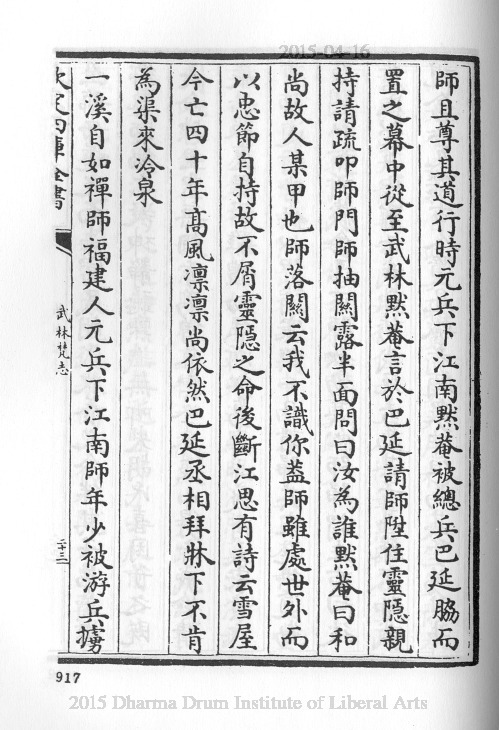 2015-04-16
師且尊其道行時元兵下江南黙菴被總兵巴延脇而
置之幕中從至武林黙菴言於巴延請師陞住靈隱親
持請疏叩師門師抽關露半面問曰汝為誰黙菴曰和
尚故人某甲也師落關云我不識你葢師雖處世外而
以忠節自持故不屑靈隱之命後斷江思有詩云雪屋
今亡四十年髙風凛凛尚依然巴延丞相拜牀下不肯
為渠來冷泉
一溪自如禪師福建人元兵下江南師年少被游兵擄
欽定四庫全書
武林梵志
二十三
917
2015 Dharma Drum Institute of Liberal Arts